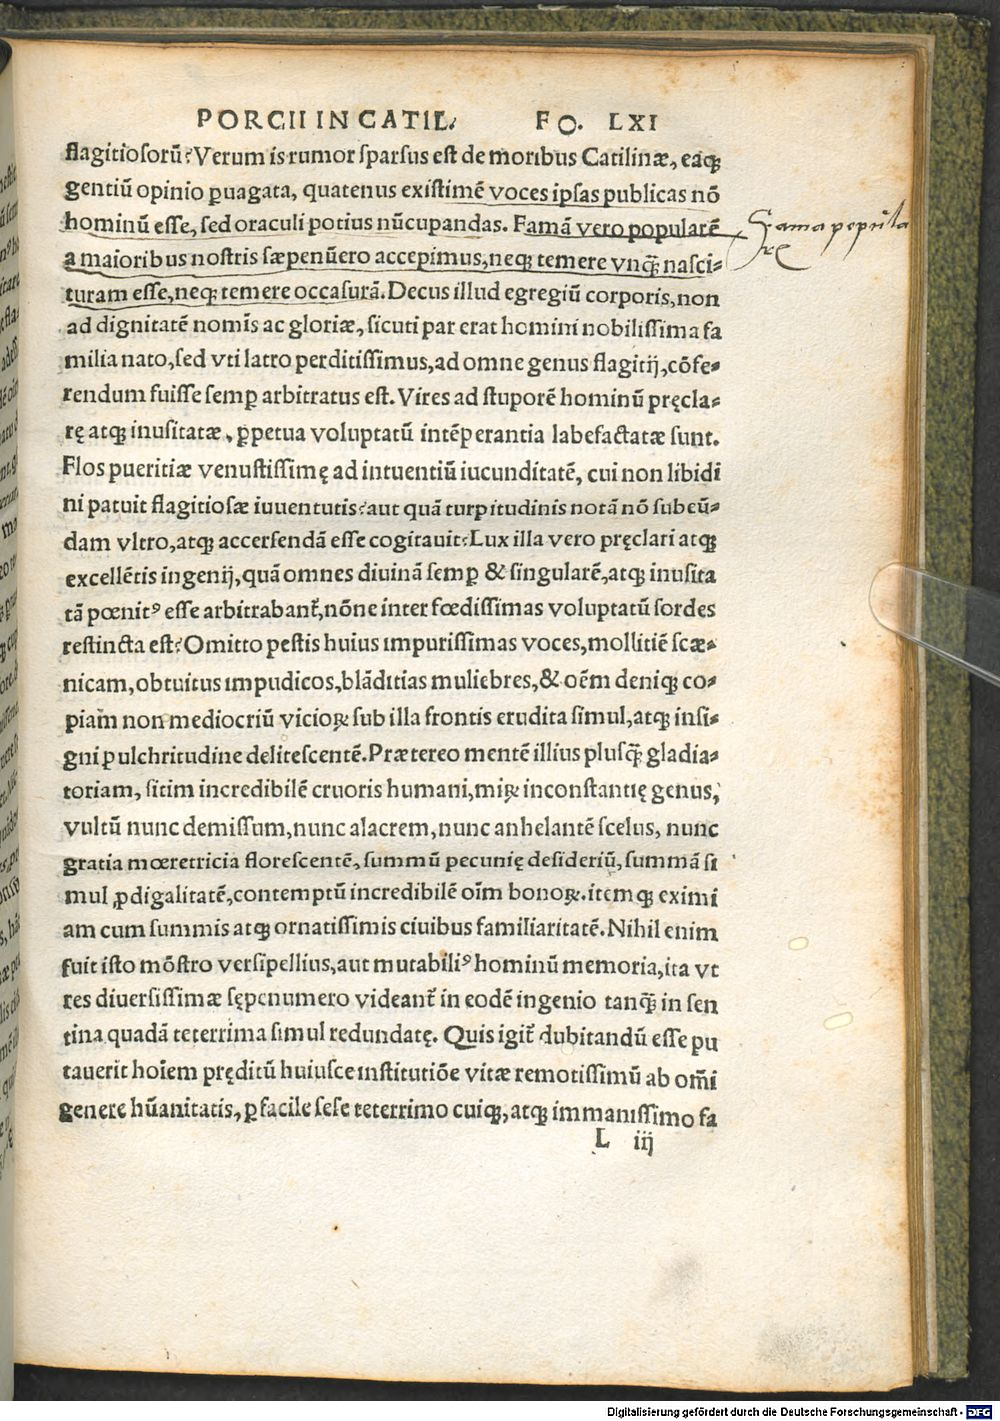 PORCII IN CATIL. FO. LXI
flagitiosorū? Verum is rumor sparsus est de moribus Catilinæ, eaq̃
gentiū opinio ꝑuagata, quatenus existimē voces ipsas publicas nō
hominū esse, sed oraculi potius nūcupandas. Famā vero popularē
a maioribus nostris sæpenūero accepimus, neq̃ temere vnq̃ nasci-
turam esse, neq̃ temere occasurā. Decus illud egregiū corporis, non
ad dignitatē nomīs ac gloriæ, sicuti par erat homini nobilissima fa
milia nato, sed vti latro perditissimus, ad omne genus flagitij, cōfe-
rendum fuisse semꝑ arbitratus est. Vires ad stuporē hominū pręcla-
rę atq̃ inusitatæ, ꝑpetua voluptatū intēperantia labefactatæ sunt.
Flos pueritiæ venustissimę ad intuentiū iucunditatē, cui non libidi
ni patuit flagitiosæ iuuentutis? aut quā turpitudinis notā nō subeū-
dam vltro, atq̃ accersendā esse cogitauit? Lux illa vero pręclari atq̃
excellētis ingenij, quā omnes diuinā semꝑ & singularē, atq̃ inusita
tā pœnitꝰ esse arbitrabant᷑, nōne inter fœdissimas voluptatū sordes
restincta est? Omitto pestis huius impurissimas voces, mollitiē scæ-
nicam, obtuitus impudicos, blāditias muliebres, & oēm deniq̃ co-
piam non mediocriū vicioꝝ sub illa frontis erudita simul, atq̃ insi-
gni pulchritudine delitescentē. Prætereo mentē illius plusq̃ gladia-
toriam, sitim incredibilē cruoris humani, miꝝ inconstantię genus,
vultū nunc demissum, nunc alacrem, nunc anhelantē scelus, nunc
gratia mœretricia florescentē, summū pecunię desideriū, summā si
mul ꝓdigalitatē, contemptū incredibilē oīm bonoꝝ. itemq̃ eximi
am cum summis atq̃ ornatissimis ciuibus familiaritatē. Nihil enim
fuit isto mōstro versipellius, aut mutabiliꝰ hominū memoria, ita vt
res diuersissimæ sępenumero videant᷑ in eodē ingenio tanq̃ in sen
tina quadā teterrima simul redundatę. Quis igit᷑ dubitandū esse pu
tauerit hoīem pręditū huiusce institutiōe vitæ remotissimū ab om̄i
genere hūanitatis, ꝑfacile sese teterrimo cuiq̃, atq̃ immanissimo fa
L iij
Fama popula
re
Digitalisierung gefördert durch die Deutsche Forschungsgemeinschaft - DFG